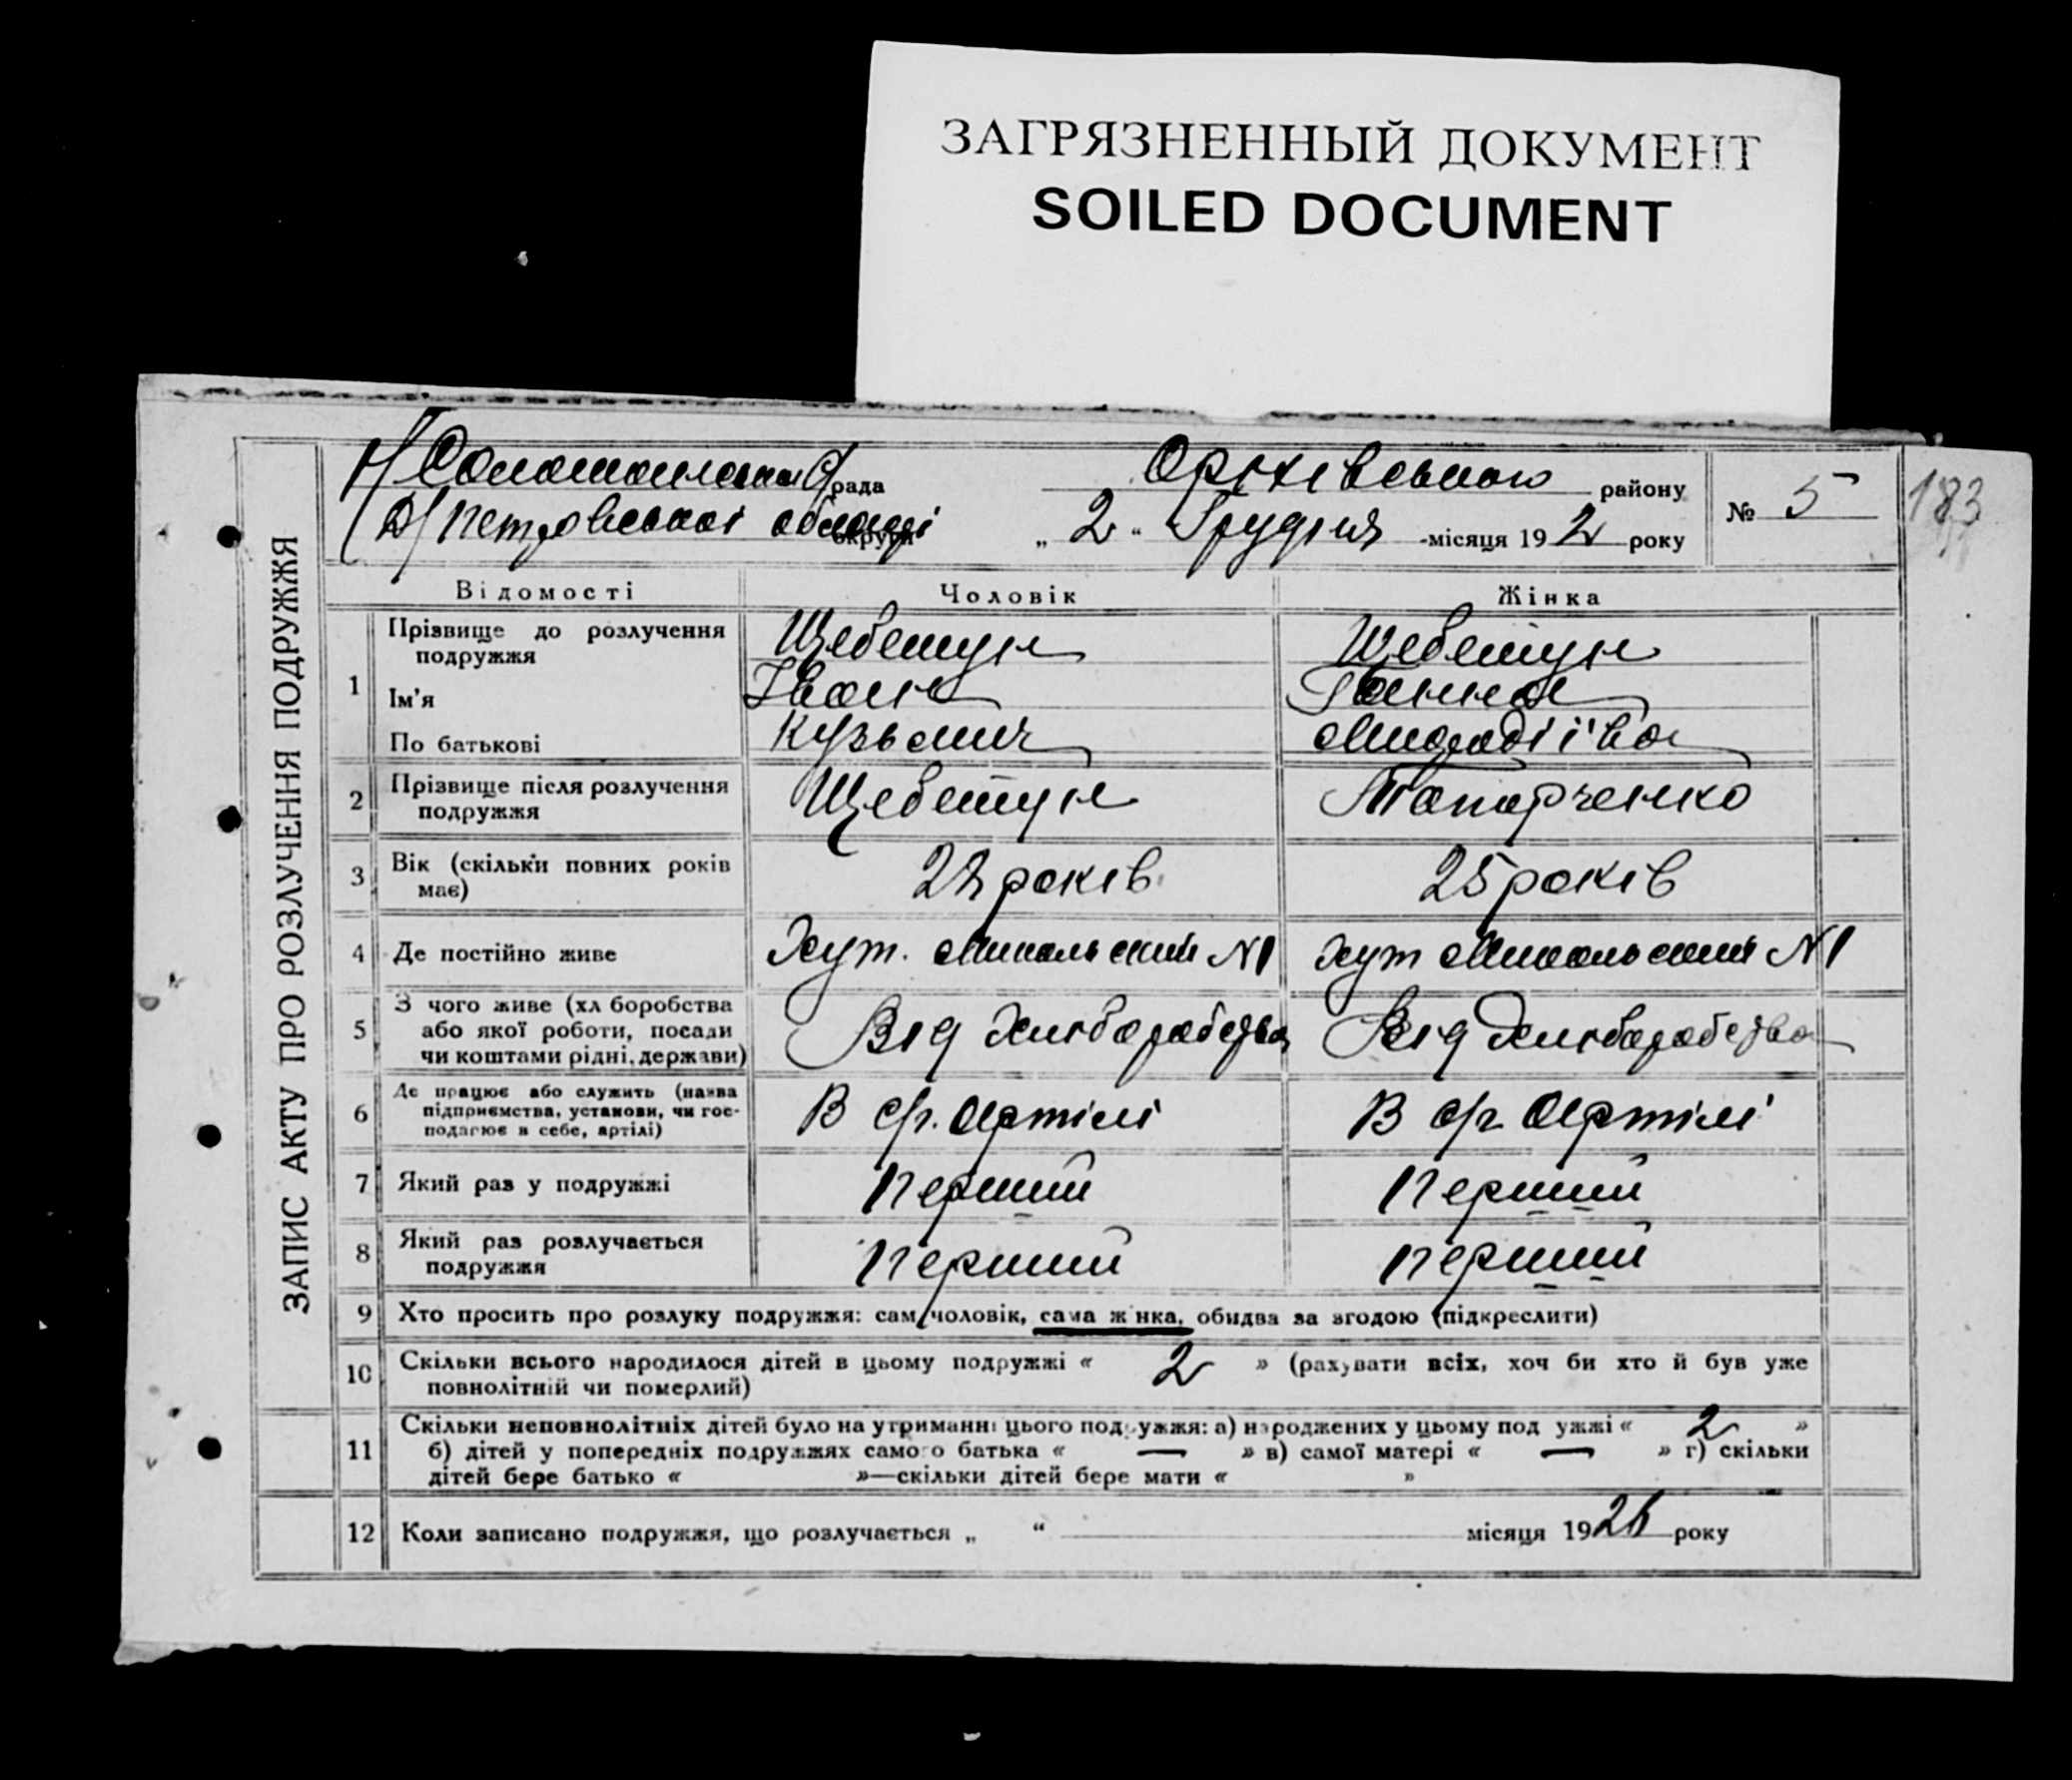 ЗАГРЯЗНЕННЫЙ ДОКУМЕНТ
SOILED DOCUMENT
рада Оріхівського району № 5 183
Д/Петровської області округи „ 2 “ Грудня -місяця 19 2 року
ЗАПИС АКТУ ПРО РОЗЛУЧЕННЯ ПОДРУЖЖЯ
Відомості Чоловік Жінка
1 Прізвище до розлучення Щебетун Щебетун
подружжя
Ім'я Іван Ганна
По батькові Кузьмич
2 Прізвище після розлучення Щебетун
подружжя
3 Вік (скільки повних років років 25 років
має)
4 Де постійно живе Хут. №1 хут №1
5 З чого живе (хл боробства Від Хліборобства Від Хліборобства
або якої роботи, посади
чи коштами рідні, держави)
6 Де працює або служить (назва В с/г. Артілі В с/г Артілі
підприємства, установи, чи гос-
подарює в себе, артілі)
7 Який раз у подружжі перший перший
8 Який раз розлучається перший перший
подружжя
9 Хто просить про розлуку подружжя: сам чоловік, сама ж нка, обидва за згодою (підкреслити)
10 Скільки всього народилося дітей в цьому подружжі « 2 » (рахувати всіх, хоч би хто й був уже
повнолітній чи померлий)
11 Скільки неповнолітніх дітей було на утриманні цього подружжя: а) народжених у цьому под ужжі « 2 »
б) дітей у попередніх подружжях самого батька « — » в) самої матері « — » г) скільки
дітей бере батько « »—скільки дітей бере мати « »
12 Коли записано подружжя, що розлучається „ “ місяця 19 року